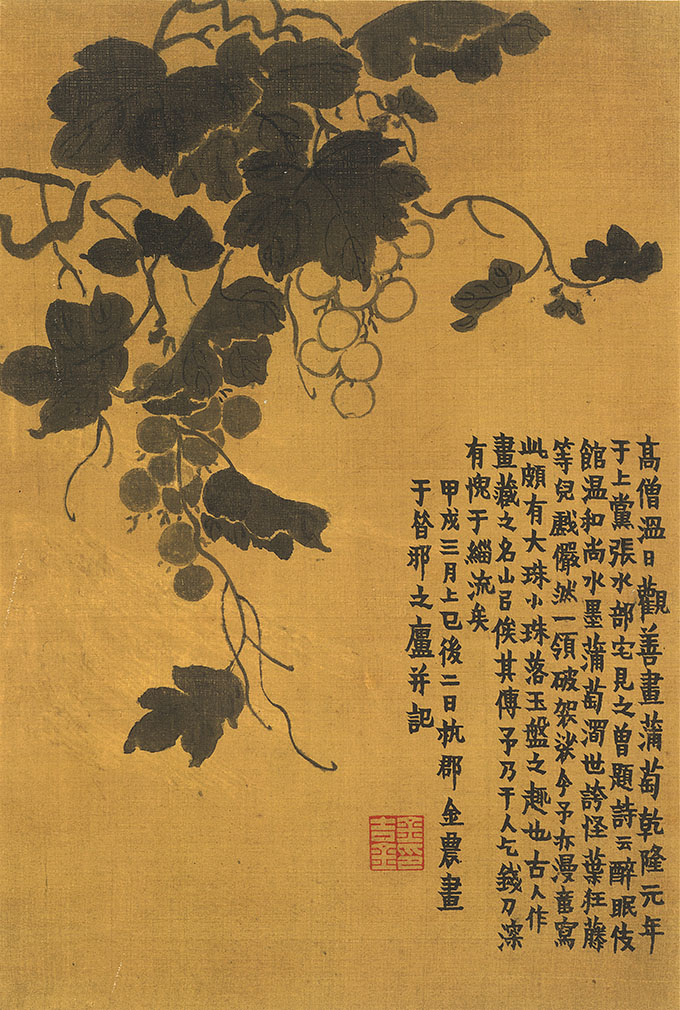 高僧溫日觀善畫蒲萄乾隆元年
于上黨張水部宅見之曾題詩云醉眠伎
館溫和尚水墨蒲萄濁世誇怪葉狂藤
等兒戲儼然一領破袈裟今予亦漫寫
此頗有大珠小珠落玉盤之趣也古人作
畫藏之名山㠯俟其傳予乃干人乞錢刀深
有愧于緇流矣
甲戌三月上巳後二日杭郡金農畫
于昔邪之廬并記
金印
吉金